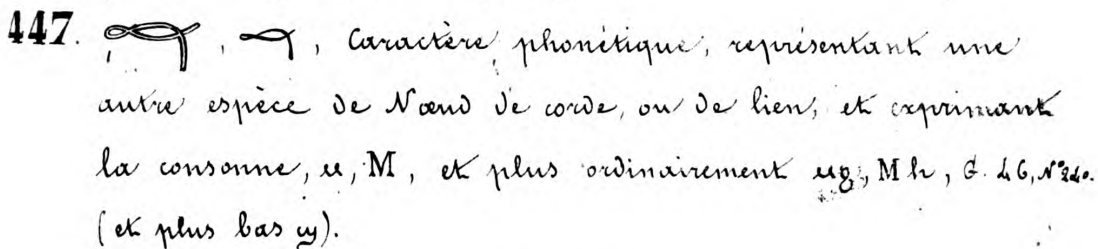 447. , , Caractère phonétique, représentant une
autre espèce de Nœud de corde, ou de lien, et exprimant
la consonne, ⲙ, M, et plus ordinairement ⲙϩ, Mh, G. 46, Nº 240.
(et plus bas ϣ).